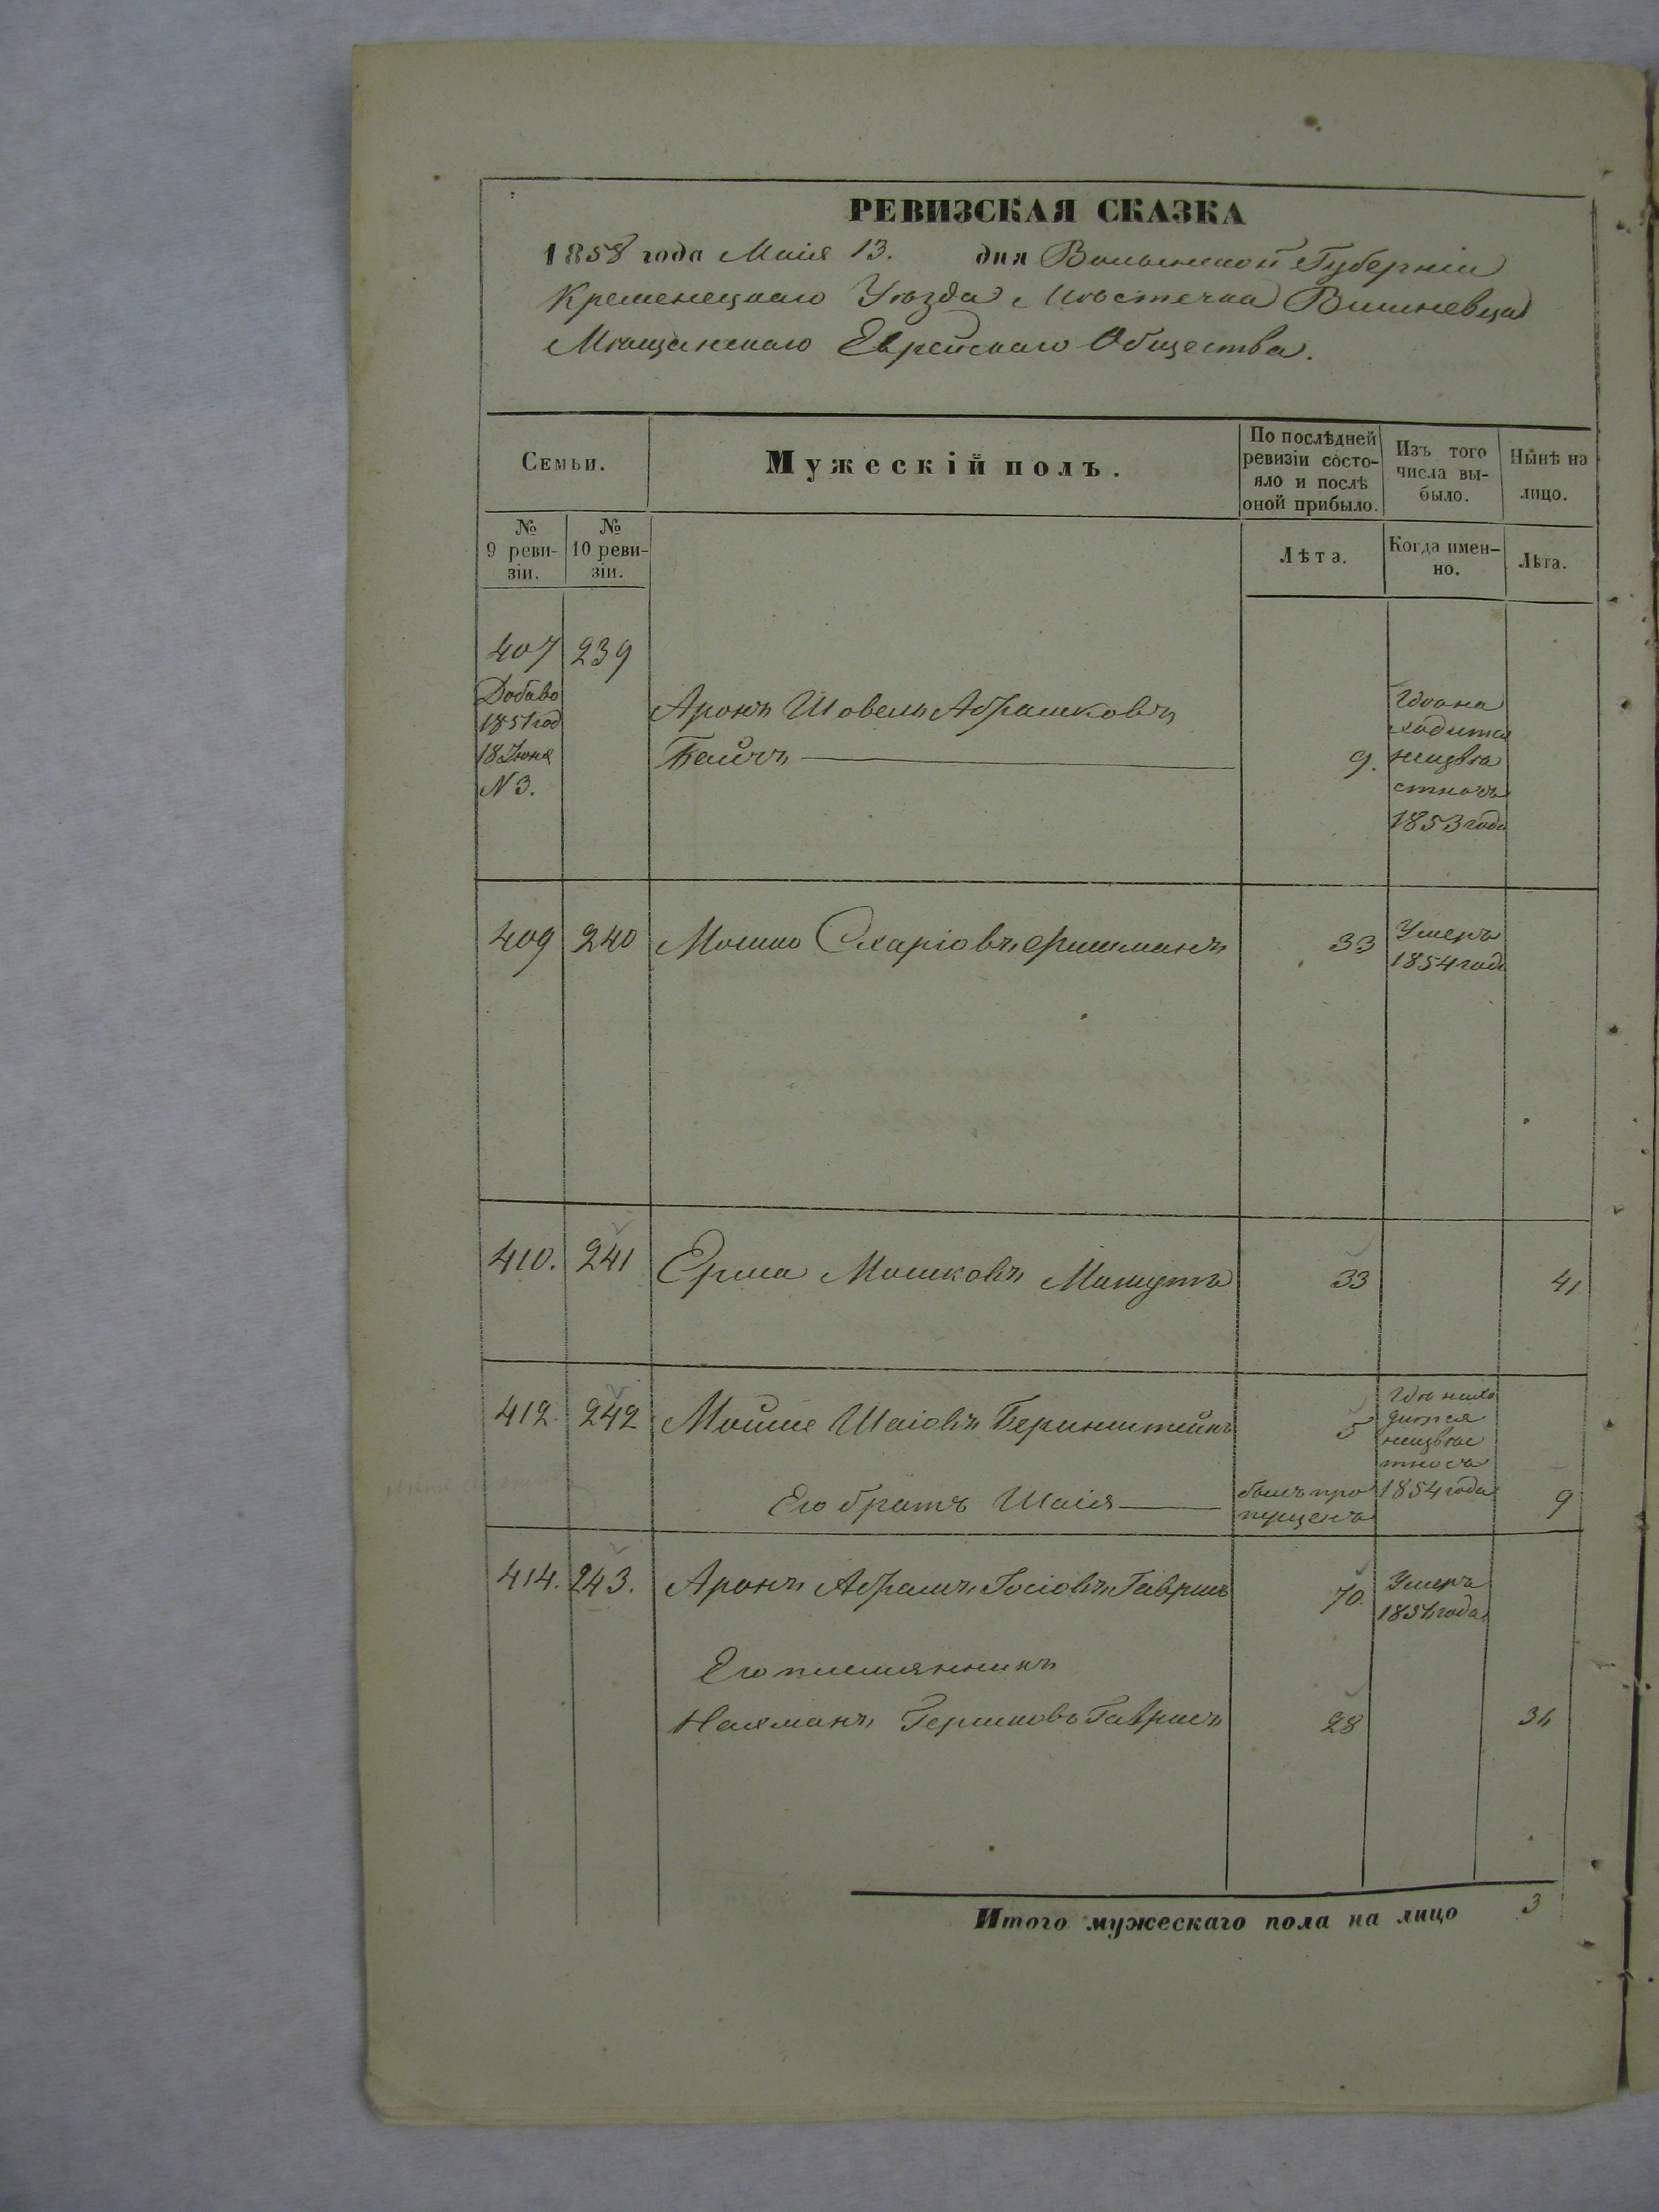 РЕВИЗСКАЯ СКАЗКА
1858 года Маія 13. дня Волынской Губерніи
Кременецкаго Уѣзда Мѣстечка Вишневца
Мѣщанскаго Еврейскаго Общества.
Семьи.
Мужескій полъ.
По послѣдней ревизіи состо-
яло и послѣ оной прибыло.
Изъ того числа вы-
было.
Нынѣ на лицо.
№ 9 реви-
зіи.
№ 10 реви-
зіи.
Лѣта.
Когда имен-
но.
Лѣта.
407 239
Добаво
1851 год
18 Іюня
N 3.
Аронъ Шовель Абрашковъ
9.
Гдѣ на
ходится
неизвѣ
стно съ
1853 года
409 240 Мошко Схаріовъ Фишманъ 33 Умеръ
1854 года
410. 241 Ерша Мошковъ 33 41
412. 242 Мойше Шаіовъ Беринштейнъ 5
Гдѣ нахо
дится
неизвѣс
тно съ
1854 года
Его братъ Шаія былъ про
пущенъ 9
414. 243. Аронъ Абрамъ Іосіовъ Гавришъ 70. Умеръ
года
Его племянникъ
Нахманъ Гершковъ Гавришъ 28
Итого мужескаго пола на лицо 3